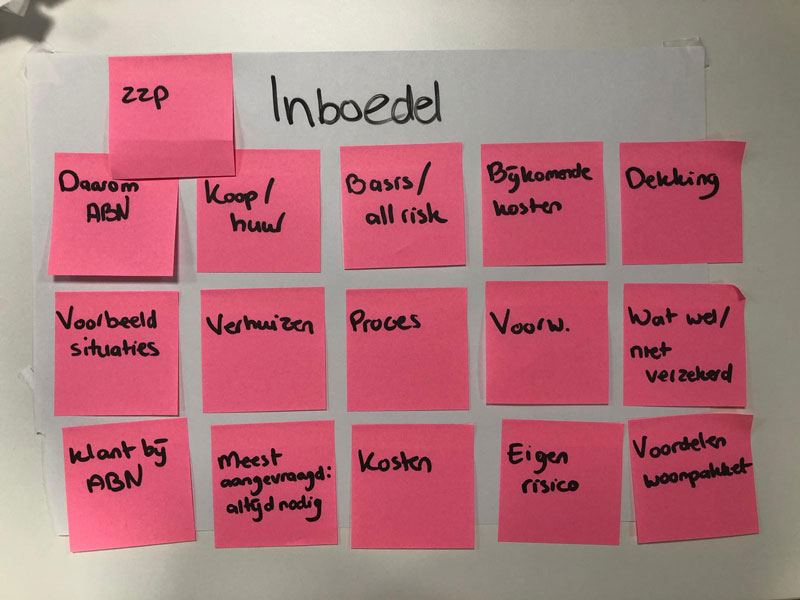 zzp
Inboedel
Daarom
ABN
Koop/
huur
Basis/
all risk
Bijkomende
kosten
Dekking
Voorbeeld
situaties
Verhuizen
Proces
Voorw.
Wat wel/
niet
verzekerd
Klant bij
ABN
Meest
aangevraagd:
altijd nodig
Kosten
Eigen
risico
Voordelen
woonpakket